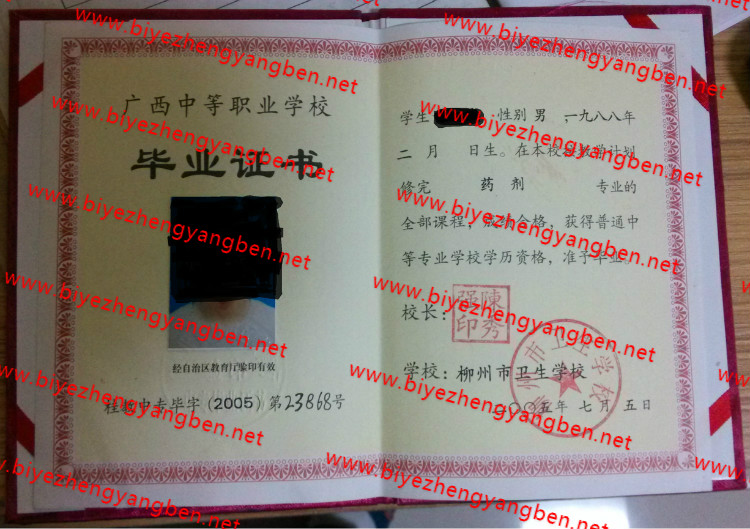 广西中等职业学校
毕业证书
经自治区教育厅验印有效
桂 中专毕字(2005)第23868号
学生 性别 男 一九八八年
二 月 日生。在本校按教学计划
修完 药剂 专业的
全部课程,成绩合格,获得普通中
等专业学校学历资格,准予毕业。
校长:
陳秀强印
学校:柳州市卫生学校
柳州市卫生学校
二〇〇五年 七月 五日
www.biyezhengyangben.net
www.biyezhengyangben.net
www.biyezhengyangben.net
www.biyezhengyangben.net
www.biyezhengyangben.net
www.biyezhengyangben.net
www.biyezhengyangben.net
www.biyezhengyangben.net
www.biyezhengyangben.net
www.biyezhengyangben.net